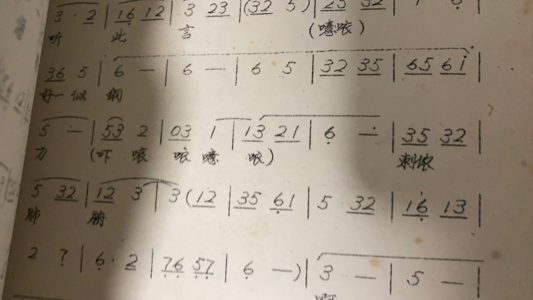 3 · 2 | 16 12 | 3 23 | (32 5) | 23 32 |
听 此 言 (噫哝)
36 5 | 6 — | 6 — | 6 5 | 32 35 | 65 6i |
好一似 钢
5 — | 53 2 | 03 1 | 13 21 | 6 — · | 35 32 |
刀 (吓 哝 哝 噫 哝) 刺侬
5 32 | 12 3 | 3 (12 | 35 61 | 5 32 | 16 13 |
肺 腑
2 7 | 6 · 2 | 76 57 | 6 —) | 3 — | 5 — |